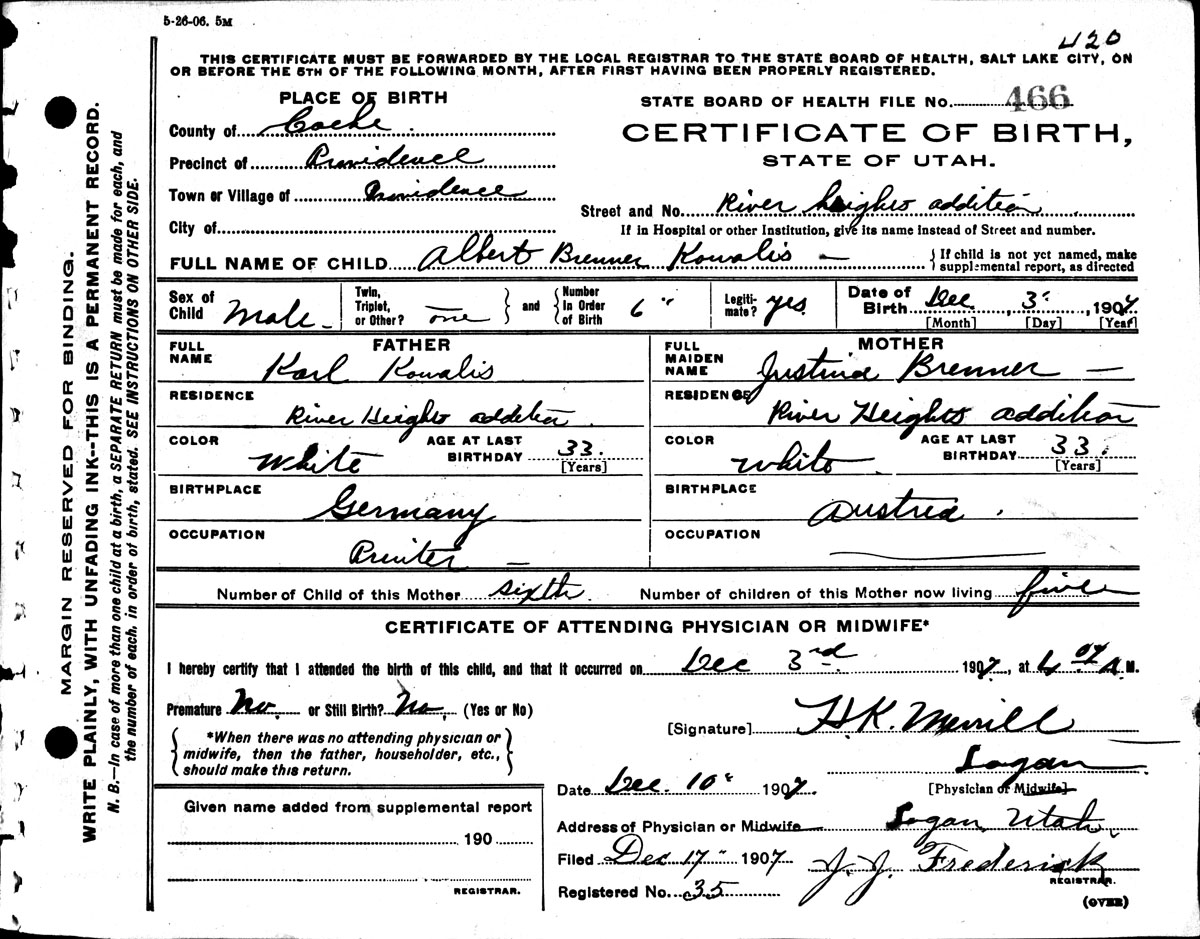 5-26-06. 5M
420
THIS CERTIFICATE MUST BE FORWARDED BY THE LOCAL REGISTRAR TO THE STATE BOARD OF HEALTH, SALT LAKE CITY, ON
OR BEFORE THE 5TH OF THE FOLLOWING MONTH, AFTER FIRST HAVING BEEN PROPERLY REGISTERED.
PLACE OF BIRTH
County of Cache
Precinct of Providence
Town or Village of Providence
City of
STATE BOARD OF HEALTH FILE No. 466
CERTIFICATE OF BIRTH,
STATE OF UTAH.
Street and No. River heights addition
If in Hospital or other Institution, give its name instead of Street and number.
FULL NAME OF CHILD Albert Brenner Kowalis — { If child is not yet named, make supplemental report, as directed
Sex of Child Male Twin, Triplet, or Other? one } and { Number in Order of Birth 6" Legiti-mate? yes Date of Birth Dec 3", 1907
[Month] [Day] [Year]
FATHER
FULL NAME Karl Kowalis
RESIDENCE
River Heights addition
COLOR White AGE AT LAST BIRTHDAY 33.
[Years]
BIRTHPLACE
Germany
OCCUPATION
Printer —
MOTHER
FULL MAIDEN NAME Justina Brenner —
RESIDENCE
River Heights addition
COLOR White AGE AT LAST BIRTHDAY 33.
[Years]
BIRTHPLACE
Austria.
OCCUPATION
Number of Child of this Mother sixth. Number of children of this Mother now living five
CERTIFICATE OF ATTENDING PHYSICIAN OR MIDWIFE*
I hereby certify that I attended the birth of this child, and that it occurred on Dec 3rd 1907, at A.M.
Premature No. or Still Birth? No, (Yes or No)
*When there was no attending physician or
midwife, then the father, householder, etc.,
should make this return.
Given name added from supplemental report
190
REGISTRAR.
[Signature] H.K. Merrill
Logan
[Physician or Midwife]
Date Dec. 10" 1907.
Address of Physician or Midwife Logan, Utah,
Filed Dec 17" 1907 J. J. Frederick
REGISTRAR.
Registered No. 35
(OVER)
MARGIN RESERVED FOR BINDING.
WRITE PLAINLY, WITH UNFADING INK--THIS IS A PERMANENT RECORD.
N. B.—In case of more than one child at a birth, a SEPARATE RETURN must be made for each, and
the number of each, in order of birth, stated. SEE INSTRUCTIONS ON OTHER SIDE.